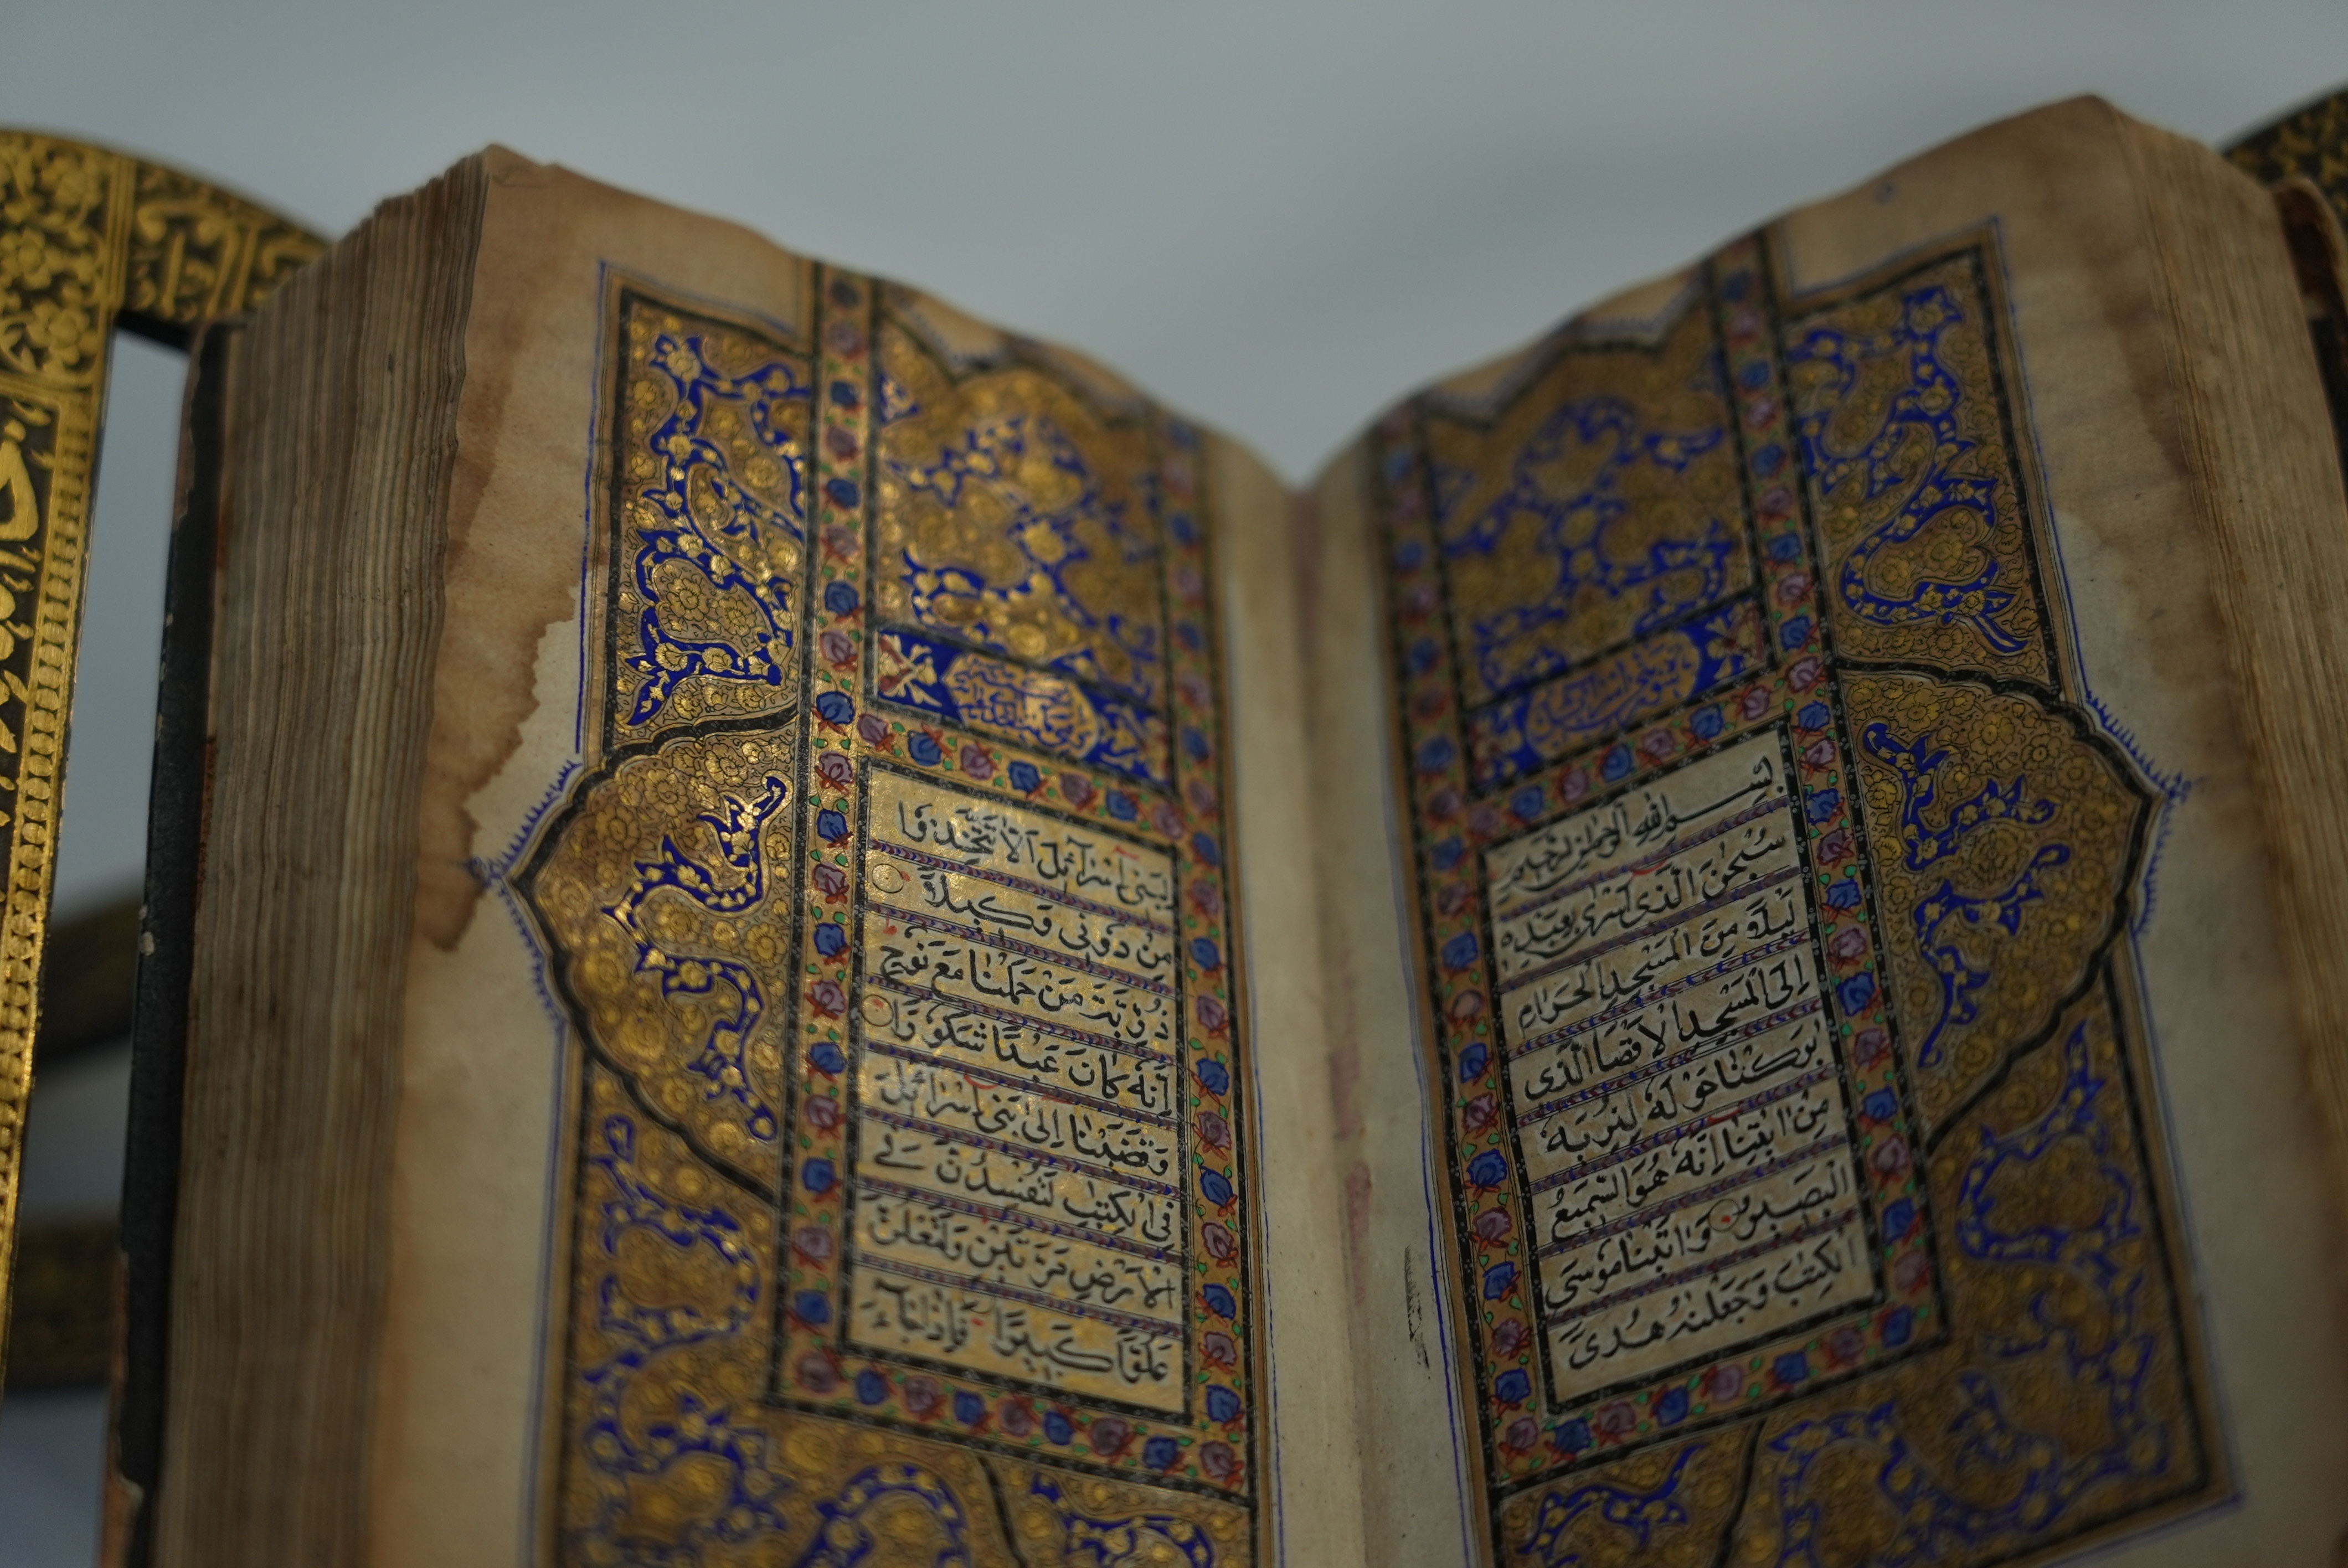 سورة بنی اسرائیل
بِسْمِ اللهِ الرَّحْمٰنِ الرَّحِيمِ
سُبْحٰنَ الَّذِى اَسْرٰى بِعَبْدِهِ
لَيْلاً مِنَ الْمَسْجِدِ الْحَرَامِ
اِلَى الْمَسْجِدِ الْاَقْصَا الَّذِى
بٰرَكْنَا حَوْلَهُ لِنُرِيَهُ
مِنْ اٰيٰتِنَا اِنَّهُ هُوَ السَّمِيعُ
الْبَصِيرُ وَاٰتَيْنَا مُوسَى
الْكِتٰبَ وَجَعَلْنٰهُ هُدًى
لِبَنِى اِسْرَآئِلَ اَلاَّ تَتَّخِذُوا
مِنْ دُونِى وَكِيلاً
ذُرِّيَّةَ مَنْ حَمَلْنَا مَعَ نُوحٍ
اِنَّهُ كَانَ عَبْدًا شَكُورًا
وَقَضَيْنَا اِلٰى بَنِى اِسْرَآئِلَ
فِى الْكِتٰبِ لَتُفْسِدُنَّ فِى
الْاَرْضِ مَرَّتَيْنِ وَلَتَعْلُنَّ
عُلُوًّا كَبِيرًا فَاِذَا جَآءَ